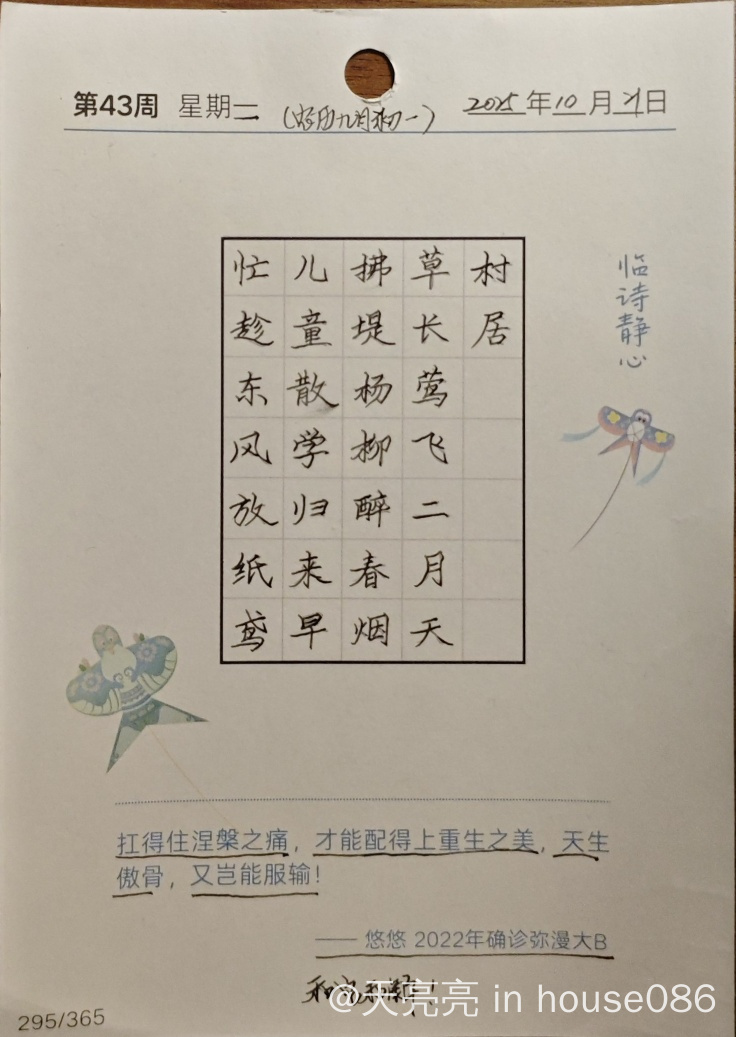 第43周 星期二 (农历九月初一) 2025年10月21日
村居
草长莺飞二月天
拂堤杨柳醉春烟
儿童散学归来早
忙趁东风放纸鸢
临诗静心
扛得住涅槃之痛，才能配得上重生之美，天生
傲骨，又岂能服输！
—— 悠悠 2022年确诊弥漫大B
@天亮亮 in house086
295/365